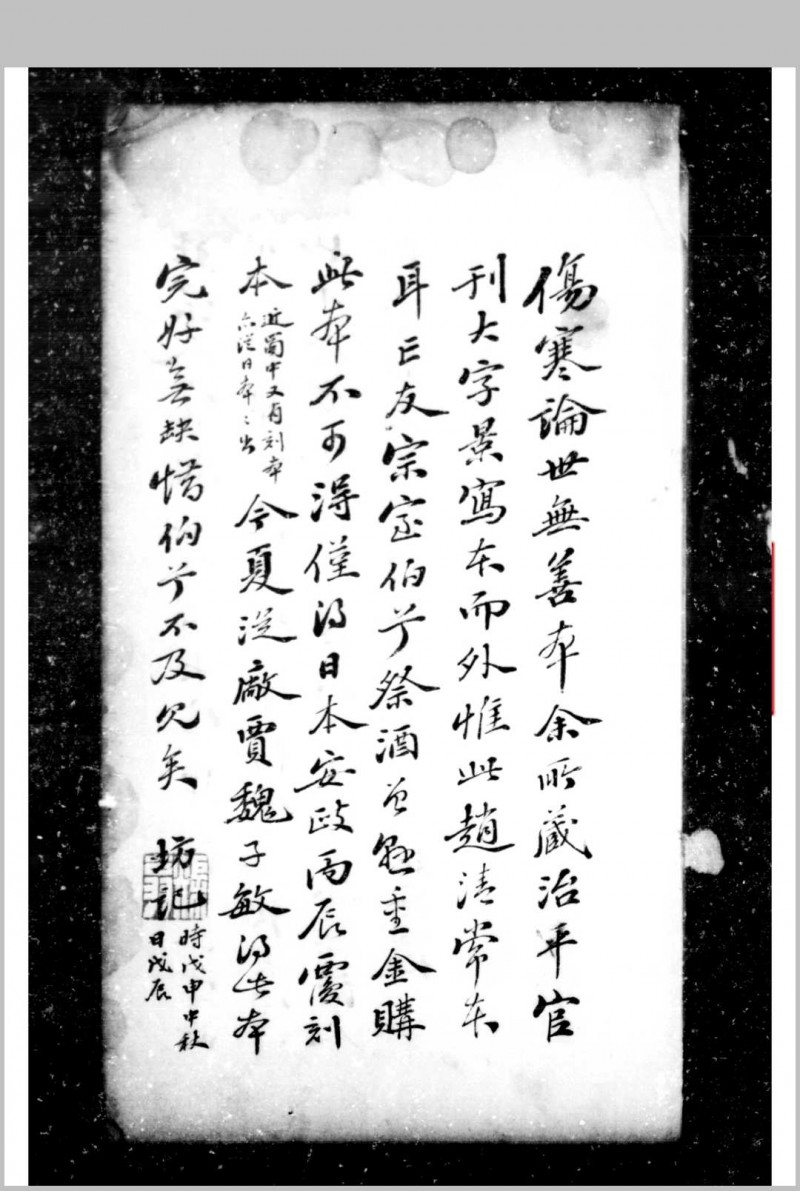 傷寒論世無善本余所藏治平官
刊大字景寫本而外惟此趙清常本
耳亡友宗室伯兮祭酒曾懸重金購
此本不可得僅得日本安政丙辰覆刻
本近蜀中又有刻本
亦從日本之出
今夏從廠賈魏子敏得此本
完好無缺惜伯兮不及見矣 坊記
時戊申中秋
日戊辰